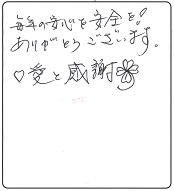 毎年の安心と安全を!
ありがとうございます。
♡愛と感謝